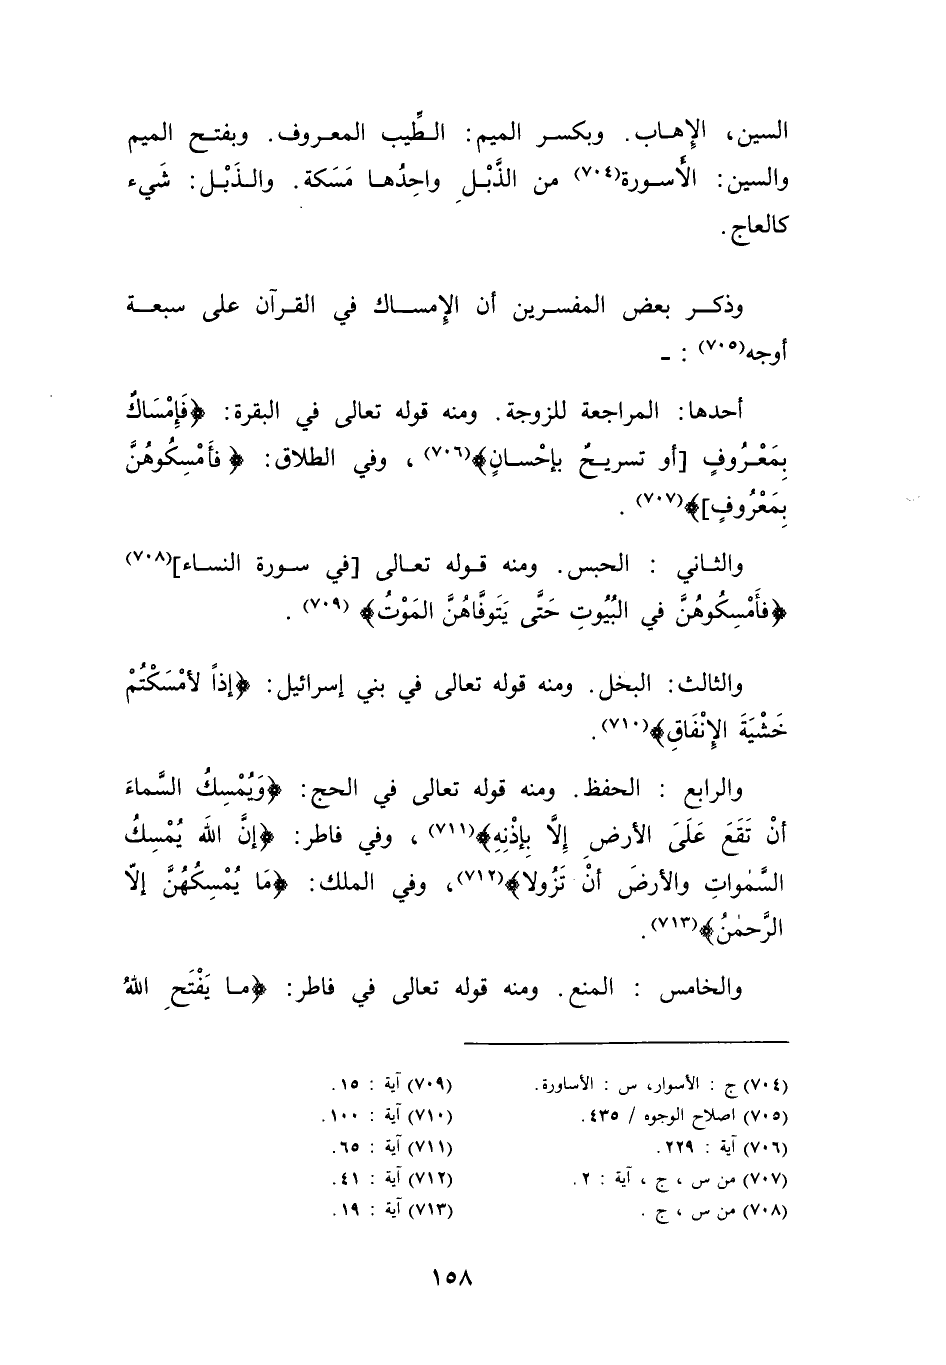 السين، الإهاب. وبكسر الميم: الطِّيب المعروف. وبفتح الميم
والسين: الأَسورة(٧٠٤) من الذَّبْلِ واحِدُها مَسَكة. والذَبْل: شَيء
كالعاج.
وذكر بعض المفسرين أن الإمساك في القرآن على سبعة
أوجه(٧٠٥) : ـ
أحدها: المراجعة للزوجة. ومنه قوله تعالى في البقرة: ﴿فَإِمْسَاكٌ
بِمَعْرُوفٍ [أو تسريحٌ بإحْسانٍ﴾(٧٠٦) ، وفي الطلاق: ﴿فأَمْسِكُوهُنَّ
بِمَعْرُوفٍ]﴾(٧٠٧) .
والثاني : الحبس. ومنه قوله تعالى [في سورة النساء](٧٠٨)
﴿فأَمْسِكُوهُنَّ في البُيُوتِ حَتَّى يَتَوفَّاهُنَّ المَوْتُ﴾ (٧٠٩) .
والثالث: البخل. ومنه قوله تعالى في بني إسرائيل: ﴿إذاً لأمْسَكْتُمْ
خَشْيَةَ الإنْفَاقِ﴾(٧١٠).
والرابع : الحفظ. ومنه قوله تعالى في الحج: ﴿وَيُمْسِكُ السَّماءَ
أنْ تَقَعَ عَلَىَ الأرضِ إلَّا بِإذْنِهِ﴾(٧١١) ، وفي فاطر: ﴿إنَّ اللَه يُمْسِكُ
السَّمٰواتِ والأرضَ أنْ تَزُولا﴾(٧١٢)، وفي الملك: ﴿مَا يُمْسِكُهُنَّ إلّا
الرَّحمٰنُ﴾(٧١٣).
والخامس : المنع. ومنه قوله تعالى في فاطر: ﴿ما يَفْتَحِ اللهُ
(٧٠٤) ج : الأسوار، س : الأساورة.
(٧٠٥) اصلاح الوجوه / ٤٣٥.
(٧٠٦) آية : ٢٢٩.
(٧٠٧) من س ، ج ، آية : ٢.
(٧٠٨) من س ، ج .
(٧٠٩) آية : ١٥.
(٧١٠) آية : ١٠٠.
(٧١١) آية : ٦٥.
(٧١٢) آية : ٤١.
(٧١٣) آية : ١٩.
١٥٨